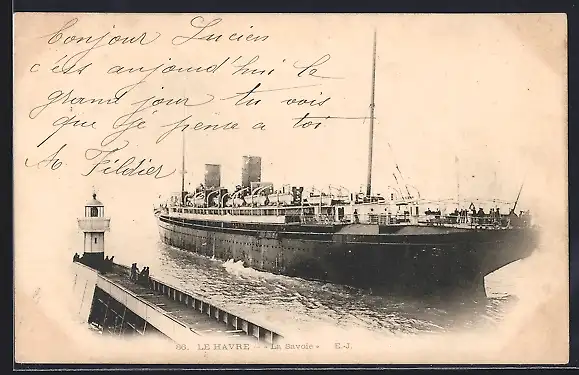 Bonjour Lucien
c'est aujourd'hui le
grand jour tu vois
que je pense a toi
A. Fildier
86. LE HAVRE - "La Savoie" E.J.